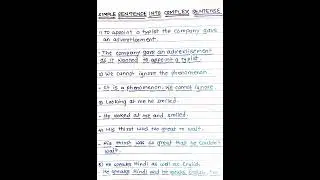 SIMPLE SENTENCE INTO COMPLEX SENTENCE
1) To appoint a typist the company gave
an advertisement.
- The company gave an advertisement
as it needed to appoint a typist.
2) We cannot ignore the phenomenon.
- It is a phenomenon, we cannot ignore.
3) Looking at me he smiled.
- He looked at me and smiled.
4) His thirst was too great to wait.
- His thirst was so great that he couldn't
wait.
5) He speaks Hindi as well as English.
He speaks Hindi and he speaks English,